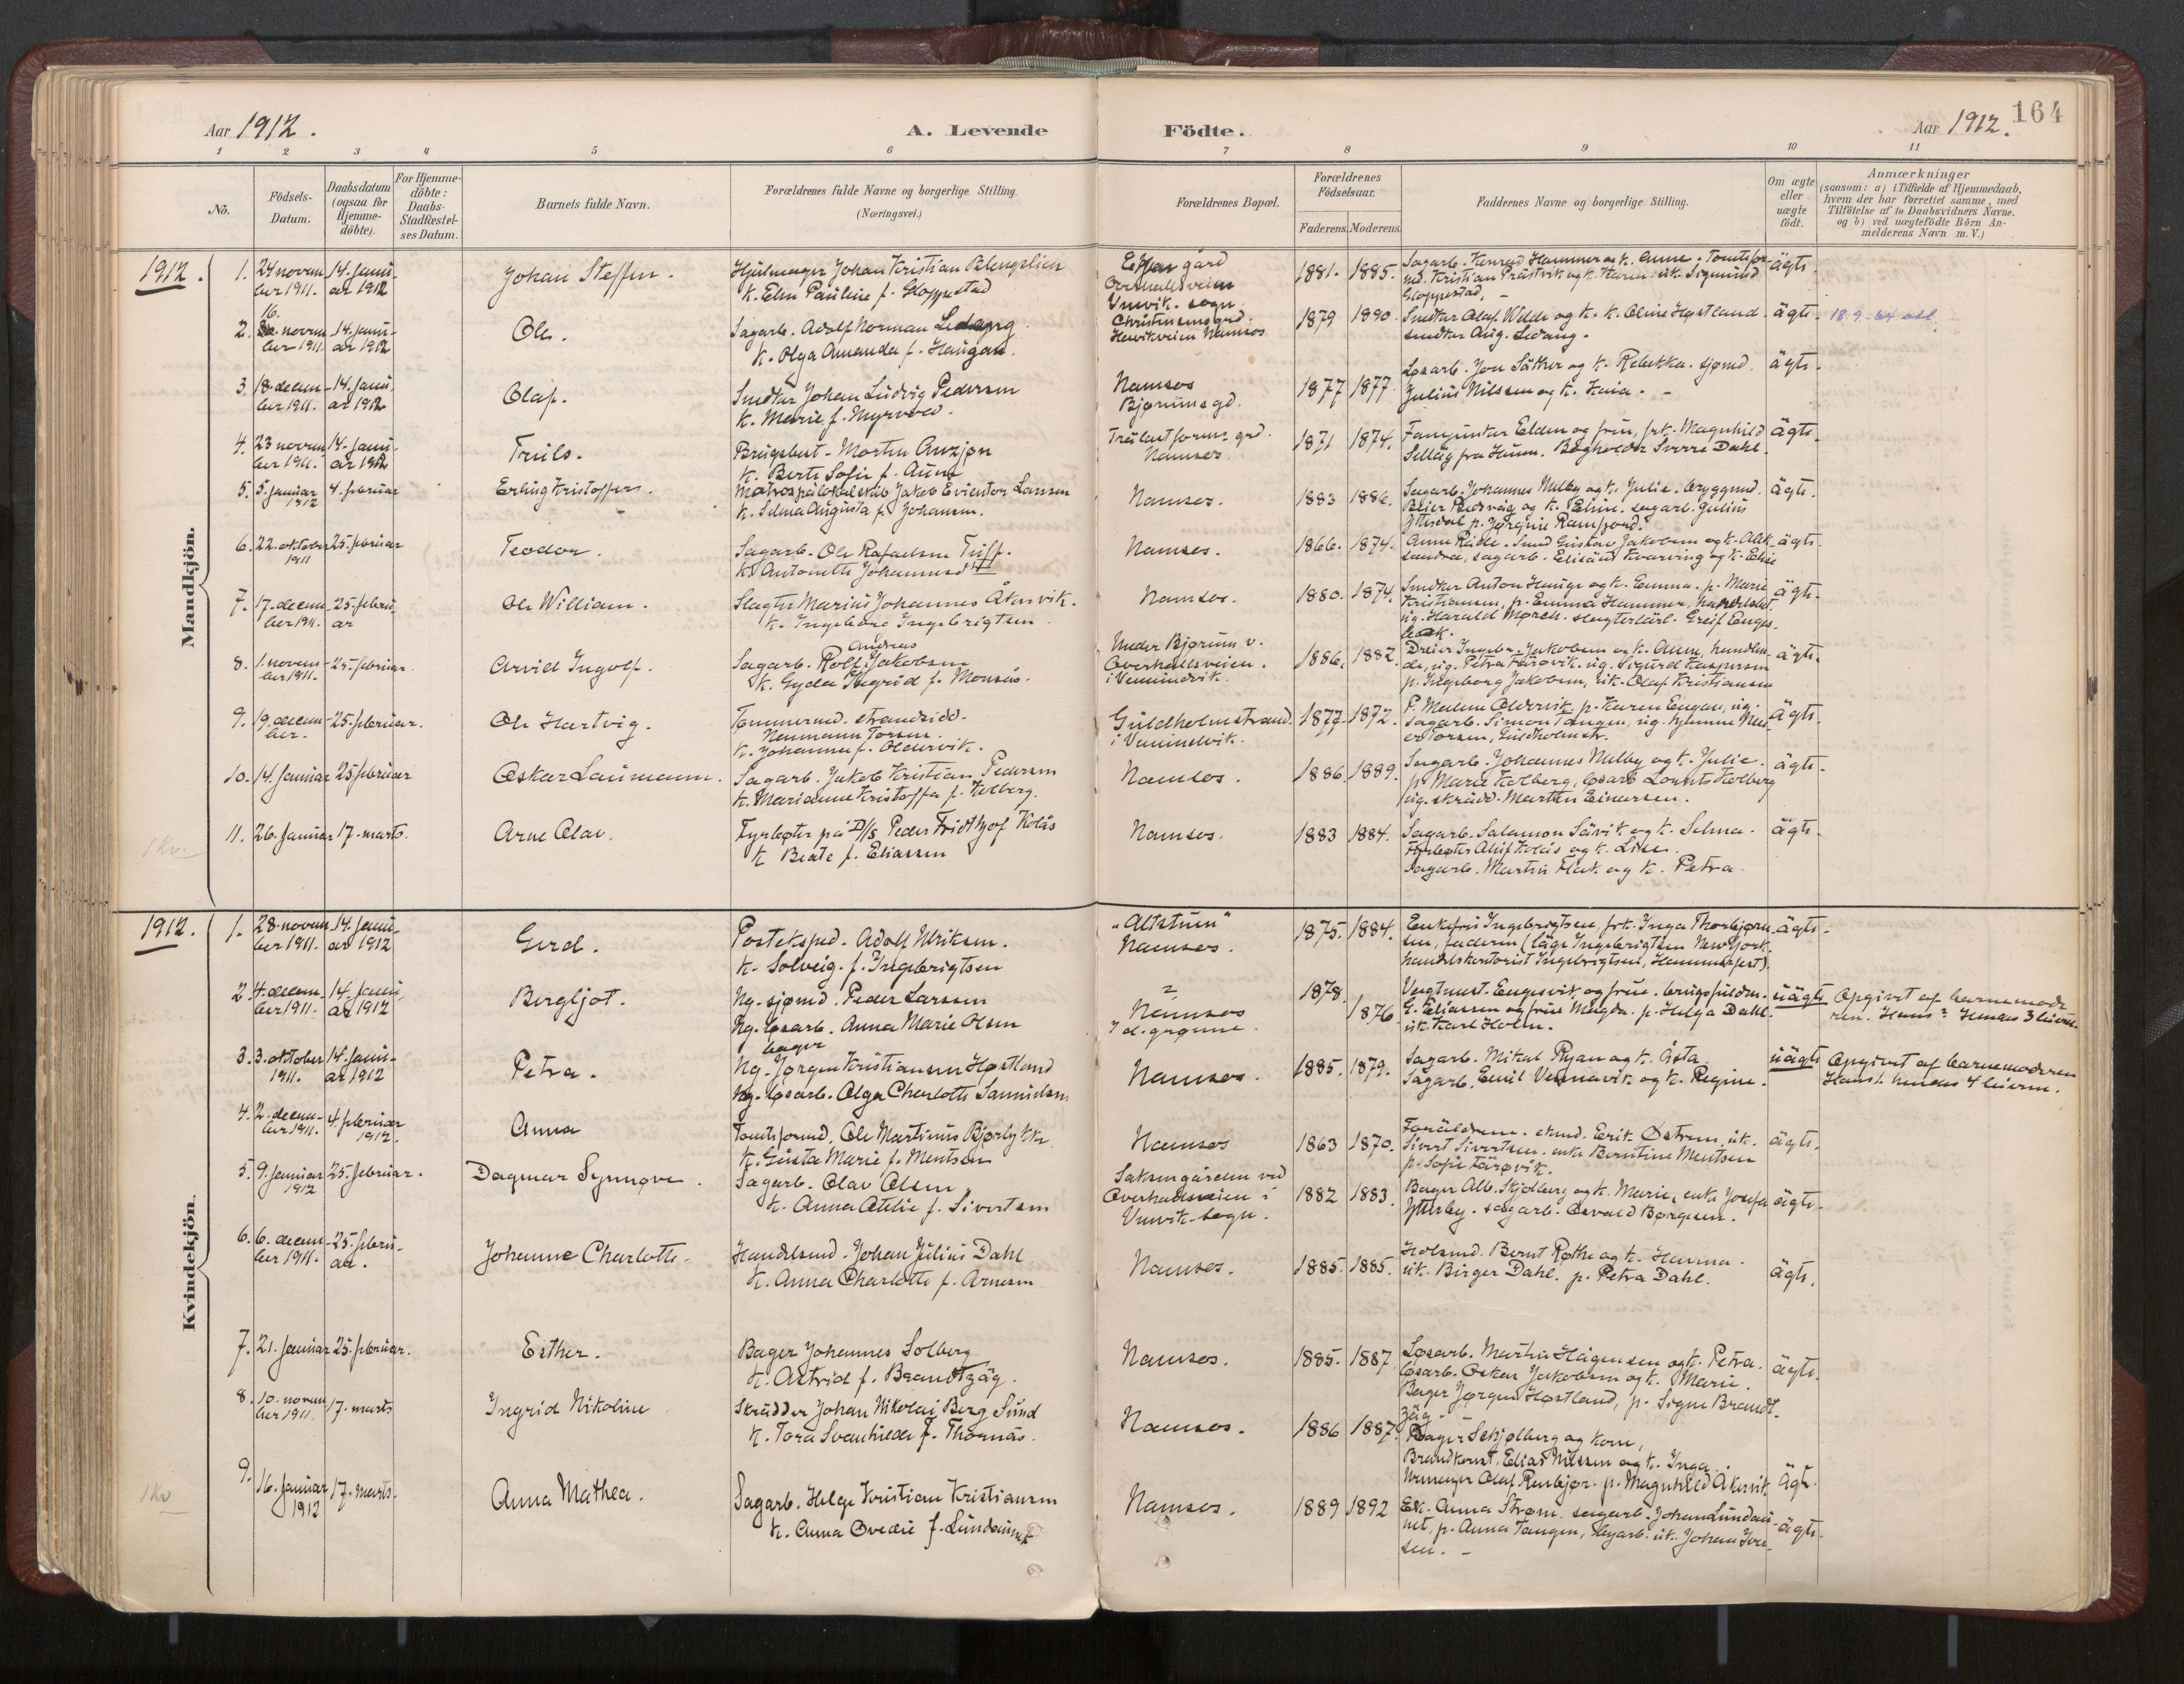 164
Aar 1912.
A. Levende
Födte.
Aar 1912.
1 2 3 4 5 6 7 8 9 10 11
No.
Födsels-
Datum.
Daabsdatum
(ogsaa for
Hjemme-
döbte).
For Hjemme-
döbte:
Daabs-
Stadfæstel-
ses Datum.
Barnets fulde Navn.
Forældrenes fulde Navne og borgerlige Stilling.
(Næringsvei.)
Forældrenes Bopæl.
Forældrenes
Födselsaar.
Faderens. Moderens.
Faddernes Navne og borgerlige Stilling.
Om ægte
eller
uægte
födt.
Anmærkninger
(saasom: a) i Tilfælde af Hjemmedaab,
hvem der har forrettet samme, med
Tilföielse af to Daabsvidners Navne,
og b) ved uægtefödte Börn An-
melderens Navn m. V.)
Mandkjön.
1912.
1. 24 novem-
ber 1911.
14. janu-
ar 1912
Johan Steffen.
Hjulmager Johan Kristian
k. Elen Pauline f. Gloppestad
gård
Overhallsveien
Vemvik. sogn
1881. 1885.
Sagarb. Konrad Hammer og k. Anne; Tomtefor-
md. Kristian Prästvik og k. Karen. uk. Sigmund
Gloppestad.
ägte.
2. 16. novem-
ber 1911.
14. janu-
ar 1912
Ole.
Sagarb. Adolf Norman Ledang
k. Olga Amanda f. Haugan.
Christensens grd.
Havikveien Namsos
1879 1890.
Snedker Olaf Welde og k. k. Oline Høstland.
snedker Aug. Ledang.
ägte.
18.9.64
3. 18. decem-
ber 1911.
14. janu-
ar 1912
Olaf.
Snedker Johan Ludvig Pedersen
k. Marie f. Myrvold.
Namsos
Bjørums gd.
1877 1877.
Løsarb. Jon Säther og k. Rebekka. sjømd.
Julius Nilssen og k. Kaia.
ägte.
4. 23 novem-
ber 1911.
14. janu-
ar 1912
Truls.
Brugsbest. Morten Auzjøn
k. Berte Sofie f. Aune
Trälastforen. grd.
Namsos
1871 1874.
Elden og frue, frk. Magnhild
Selläg fra Hunn. Bogholder Sverre Dahl.
ägte.
5. 5. januar
1912
4. februar
Erling Kristoffer.
Matros på lokalskib Jakob Larsen
k. Selma Augusta f. Johansen.
Namsos.
1883 1886.
Sagarb. Johannes Melby og k. Julie. bryggmd.
Peder og k. Eline. sagarb. Julius
Ytterdal p. Jørgine Ramfjord.
ägte.
6. 22. oktober
1911
25. februar
Teodor.
Sagarb. Ole Rafaelsen
k. Antonette Johannesd.
Namsos.
1866. 1874.
Smed Gustav Jakobsen og k. Alek-
sandra, sagarb. Elisäus Kvarving og k. Elise
ägte.
7. 17. decem-
ber 1911.
25. febru-
ar
Ole William.
Slagter Marius Johannes Åkervik.
k. Ingeborg Ingebrigtsen
Namsos.
1880. 1874.
Snedker Anton Hauge og k. Emma. p. Marie
Kristiansen, p. Emma Hammer, handelsbet.
ug. Harald Mørch. slagterlärl. Greif Enges-
bak.
ägte.
8. 1. novem-
ber 1911.
25. februar.
Arvid Ingolf.
Sagarb. Rolf Andreas Jakobsen
k. Gyda Ingrid f. Monsås.
Neder Bjørum v.
Overhallsveien.
i Vemundvik.
1886. 1882.
Dreier Ingebr. Jakobsen og k. Anne, handlen-
de, ug. Petra Färøvik. ug. Sigurd Kaspersen
p. Ingeborg Jakobsen, uk. Olaf Kristiansen
ägte.
9. 19. decem-
ber.
25. februar.
Ole Hartvig.
Tømmermd. strandsidd.
Neumann Torsen.
k. Johanna f. Oldervik.
Guldholmstrand.
i Vemundvik.
1877. 1872.
P. Malene Oldervik p. Karen Engan, ug.
Sagarb. Simon Tangen, ug. hjemme
Torsen, Guldholmstr.
ägte.
10. 14. januar 25. februar
Oskar Laumann.
Sagarb. Jakob Kristian Pedersen
k. Marianne Kristoffa f. Kolberg.
Namsos.
1886. 1889.
Sagarb. Johannes Melby og k. Julie.
p. Marie Kolberg, løsarb Lorents Kolberg
ug. skrädd. Martin Einarsen.
ägte.
11. 26. januar 17. marts.
Arne Olav.
Fyrbøter på D/S Peder Fridthjof Kolås
k Beate f. Eliassen
Namsos.
1883 1884.
Sagarb. Salamon Sävik og k. Selma.
Fyrbøter Kolås og k. Lise.
Sagarb. Martin Flak og k. Petra
ägte.
1 Kv.
Kvindekjön.
1912.
1. 28. novem-
ber 1911.
14. janu-
ar 1912
Gerd.
Posteksped. Adolf Ulriksen.
k. Solveig. f. Ingebrigtsen
"Altstun"
Namsos.
1875. 1884.
Enkefru Ingebrigtsen, frk. Inga Thorbjørn-
sen, faderen (läge Ingebrigtsen New York.
handelskontorist Ingebrigtsen, Hammerfest).
ägte.
2. 4. decem-
ber 1911.
14. janu-
ar 1912
Bergljot.
Ug. sjømd. Peder Larssen
Ug. løsarb. Anna Marie Olsen
?
Namsos
1878.
1876
Vegtmest. Engesvik og frue. brugsfuldm.
G. Eliassen og frue Magda. p. Helga Dahl.
uk. Karl Holm.
uägte
Opgivet af barnemode-
ren. Hans? Hendes 3 leierm.
3. 3. oktober
1911.
14. janu-
ar 1912
Petra.
bager
Ug. Jørgen Kristiansen Høstland
Ug. løsarb. Olga Charlotte Samuelsen
Namsos.
1885. 1879.
Sagarb. Mikal Ryan og k. Åsta.
Sagarb. Emil Vennavik og k. Regine.
uägte
Opgivet af barnemoderen
Hans 1. hendes 4 leierm.
4. 2. decem-
ber 1911.
4. februar
1912.
Anna
Tomteformd. Ole Martinus Bjørlykke
k. Gusta Marie f. Mentsen
Namsos
1863 1870.
Foräldrene. skmd. Eerik Østrem, uk.
Sivert Sivertsen. enke Berntine Mentsen
p. Sofie Färøvik.
ägte.
5. 9. januar
1912
25. februar.
Dagmar Synnøve.
Sagarb. Olav Olsen
k. Anna Otelie f. Sivertsen
Saksengården ved
Overhallsveien i
Vemvik. sogn.
1882 1883.
Bager Alb. Skjølberg og k. Marie, enke Josefa
Ytterby. sagarb. Osvald Børgesen.
ägte.
6. 6. decem-
ber 1911.
25. febru-
ar.
Johanne Charlotte.
Handelsmd. Johan Julius Dahl
k. Anna Charlotte f. Arnesen
Namsos.
1885. 1885.
Holsmd. Bernt Røthe og k. Hanna.
uk. Birger Dahl. p. Petra Dahl.
ägte.
7. 21. januar 25. februar.
Esther.
Bager Johannes Solberg
k. Astrid f. Brandtzäg.
Namsos.
1885. 1887
Løsarb. Martin Hågensen og k. Petra.
løsarb. Oskar Jakobsen og k. Marie.
Bager Jørgen Høstland, p. Signe Brandt-
zäg.
ägte.
8. 10. novem-
ber 1911.
17. marts
Ingrid Nikoline
Skrädder Johan Nikolai Berg Sund
k. Tora Svanhilde f. Thornäs.
Namsos.
1886 1887
Bager Schjølberg og kone,
Brandkonst. Elias Nilssen og k. Inga.
Urmager Olaf Renbjør. p. Magnhild Åkervik.
ägte.
9. 16. januar
1912
17. marts.
Anna Mathea.
Sagarb. Helge Kristian Kristiansen
k. Anna Ovedie f. Lundaunet
Namsos.
1889 1892
Ek. Anna Strøm, sagarb. Johan Lundau-
net, p. Anna Tangen, uk. Johan Iver-
sen.
ägte.
1 Kv